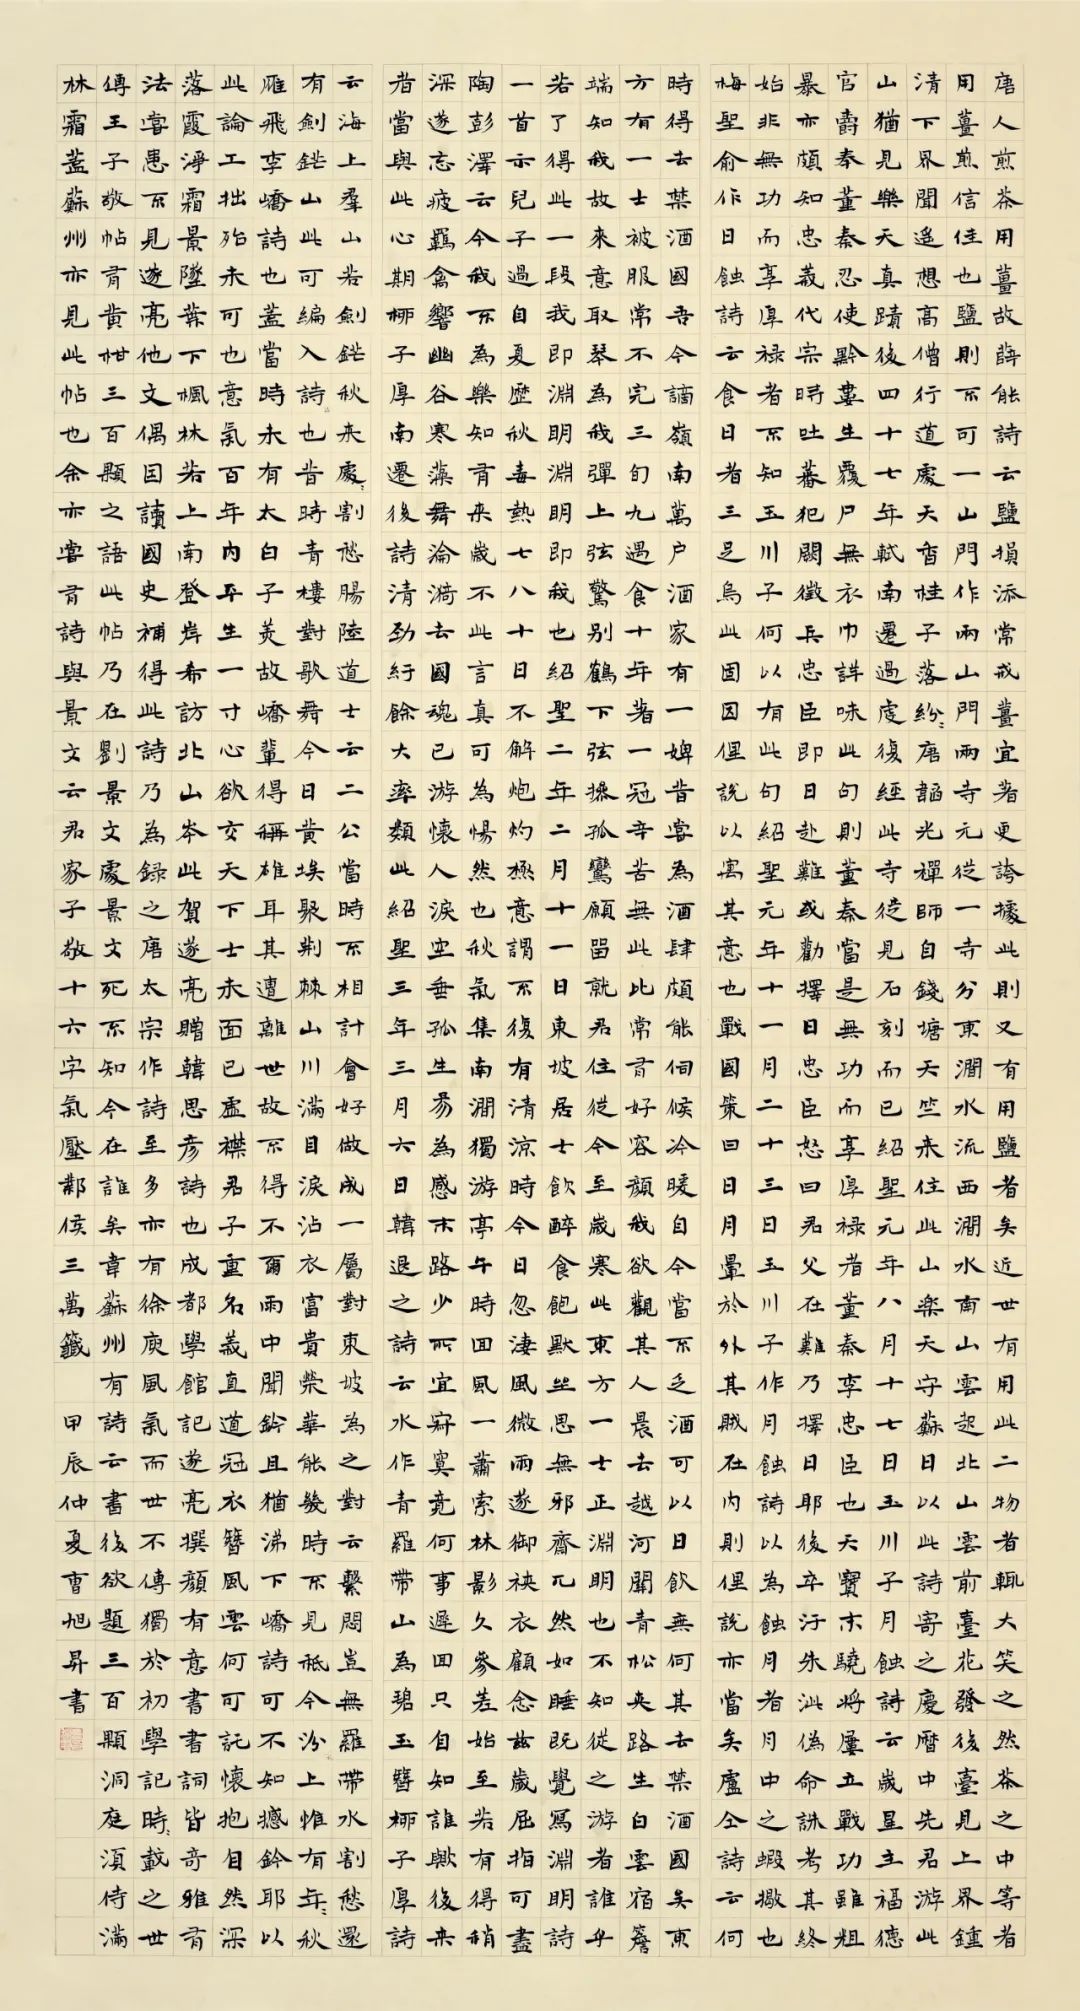 唐人煎茶用薑故薛能詩云鹽損添常戒薑宜著更誇據此則又有用鹽者矣近世有用此二物者輒大笑之然茶之中等者
用薑煎信佳也鹽則不可一山門作兩山門兩寺元從一寺分東澗水流西澗水南山雲起北山雲前臺花發後臺見上界鍾
清下界聞遥想高僧行道處天香桂子落紛〻唐韜光禪師自錢塘天竺来住此山樂天守蘇日以此詩寄之慶曆中先君游此
山猶見樂天真蹟後四十七年軾南遷過虔復經此寺徒見石刻而已紹聖元年八月十七日玉川子月蝕詩云歲星主福德
官爵奉董秦忍使黔婁生覆尸無衣巾詳味此句則董秦當是無功而享厚禄者董秦李忠臣也天寶末驍將屢立戰功雖粗
暴亦頗知忠義代宗時吐蕃犯闕徵兵忠臣即日赴難或勸擇日忠臣怒曰君父在難乃擇日耶後卒汙朱泚偽命誅考其終
始非無功而享厚禄者不知玉川子何以有此句紹聖元年十一月二十三日玉川子作月蝕詩以為蝕月者月中之蝦蟆也
梅聖俞作日蝕詩云食日者三足烏此固因俚說以寓其意也戰國策曰日月暈於外其賊在内則俚說亦當矣盧仝詩云何
時得去禁酒國吾今謫嶺南萬户酒家有一婢昔嘗為酒肆頗能伺候冷暖自今當不乏酒可以日飲無何其去禁酒國矣東
方有一士被服常不完三旬九遇食十年著一冠辛苦無此比常有好容顔我欲觀其人晨去越河關青松夾路生白雲宿簷
端知我故來意取琴為我彈上弦驚别鶴下弦操孤鸞願留就君住從今至歲寒此東方一士正淵明也不知從之游者誰乎
若了得此一段我即淵明淵明即我也紹聖二年二月十一日東坡居士飲醉食飽默坐思無邪齋兀然如睡既覺寫淵明詩
一首示兒子過自夏歷秋毒熱七八十日不解炮灼極意謂不復有清涼時今日忽淒風微雨遂御裌衣顧念兹歲屈指可盡
陶彭澤云今我不為樂知有来歲不此言真可為惕然也秋氣集南澗獨游亭午時回風一蕭索林影久參差始至若有得稍
深遂忘疲羈禽響幽谷寒藻舞淪漪去國魂已游懷人淚空垂孤生易為感失路少所宜寂寞竟何事遲回只自知誰歟後来
者當與此心期柳子厚南遷後詩清勁紆餘大率類此紹聖三年三月六日韓退之詩云水作青羅帶山為碧玉簪柳子厚詩
云海上羣山若劍鋩秋来處〻割愁腸陸道士云二公當時不相計會好做成一屬對東坡為之對云繫悶豈無羅帶水割愁還
有劍鋩山此可編入詩也昔時青樓對歌舞今日黄埃聚荆棘山川滿目淚沾衣富貴榮華能幾時不見秪今汾上惟有年〻秋
雁飛李嶠詩也蓋當時未有太白子美故嶠輩得稱雄耳其遭離世故不得不爾雨中聞鈴且猶涕下嶠詩可不知撼鈴耶以
此論工拙殆未可也意氣百年内平生一寸心欲交天下士未面已虚襟君子重名義直道冠衣簪風雲何可託懷抱自然深
落霞淨霜景墜葉下楓林若上南登岸希訪北山岑此賀遂亮贈韓思彦詩也成都學館記遂亮撰顔有意書書詞皆奇雅有
法嘗患不見遂亮他文偶因讀國史補得此詩乃為録之唐太宗作詩至多亦有徐庾風氣而世不傳獨於初學記時〻載之世
傳王子敬帖有黄柑三百顆之語此帖乃在劉景文處景文死不知今在誰矣韋蘇州有詩云書後欲題三百顆洞庭須待滿
林霜蓋蘇州亦見此帖也余亦嘗有詩與景文云君家子敬十六字氣壓鄴侯三萬籤 甲辰仲夏曹旭昇書